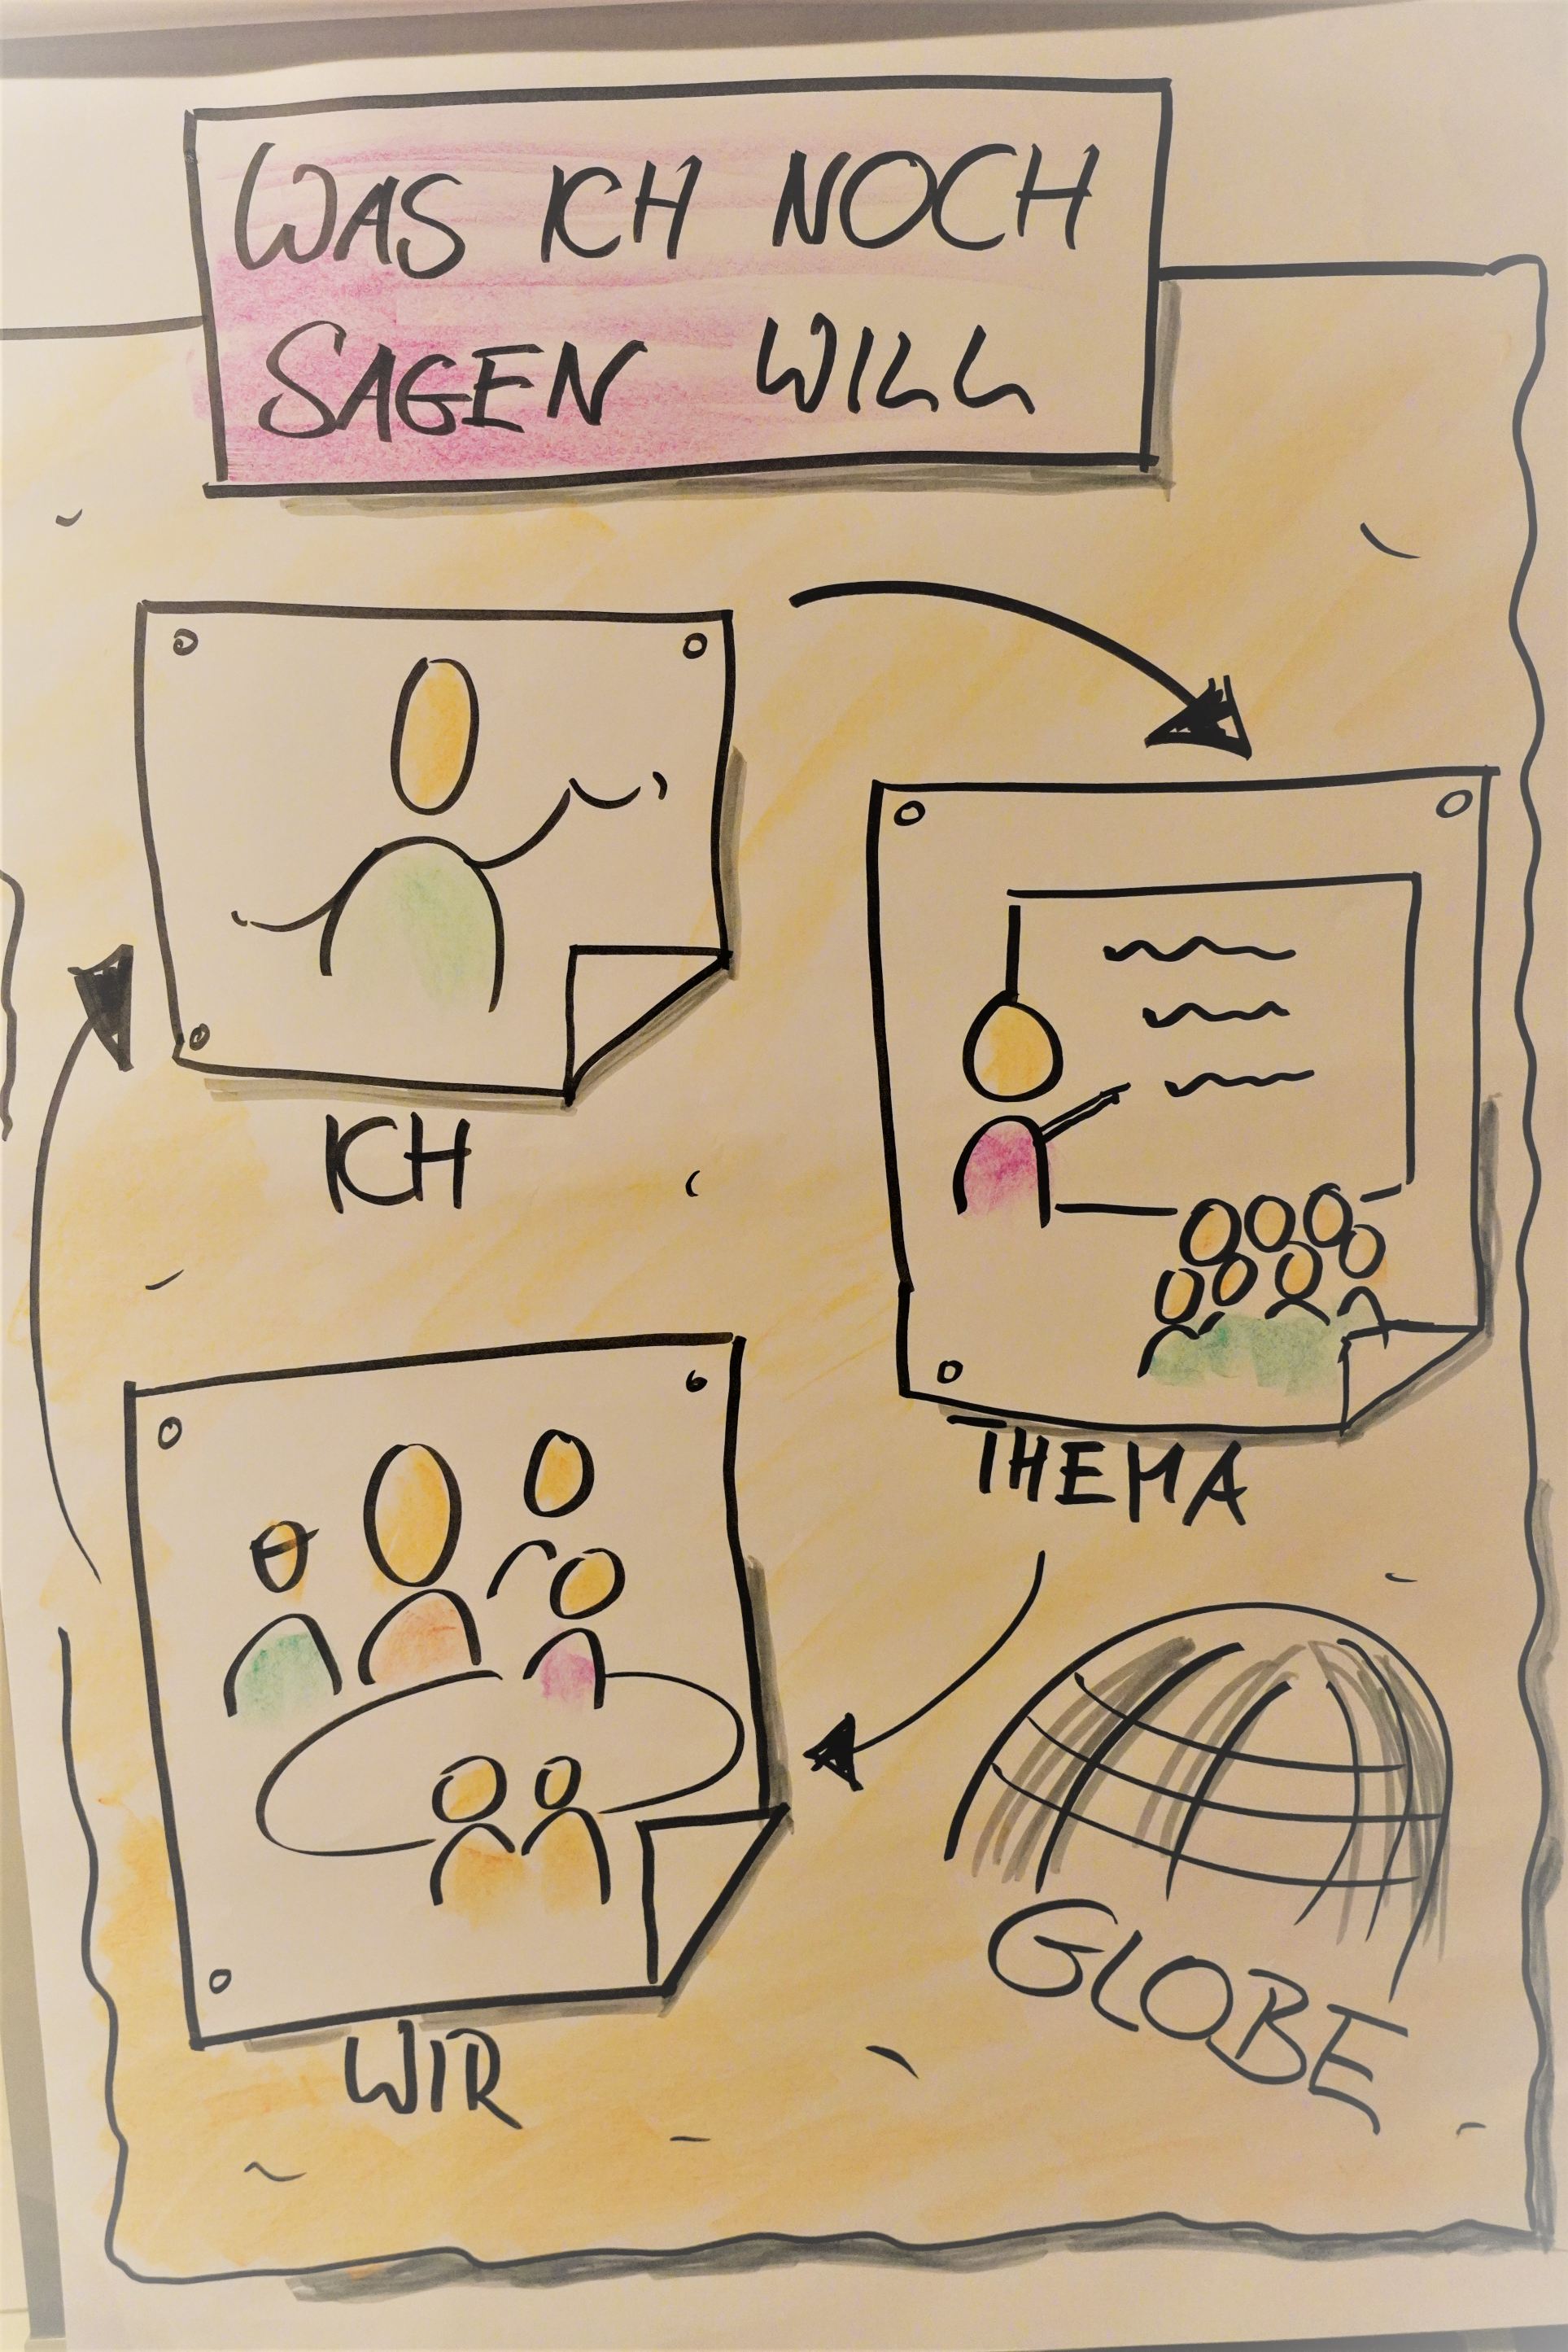 WAS ICH NOCH
SAGEN WILL
ICH
THEMA
WIR
GLOBE